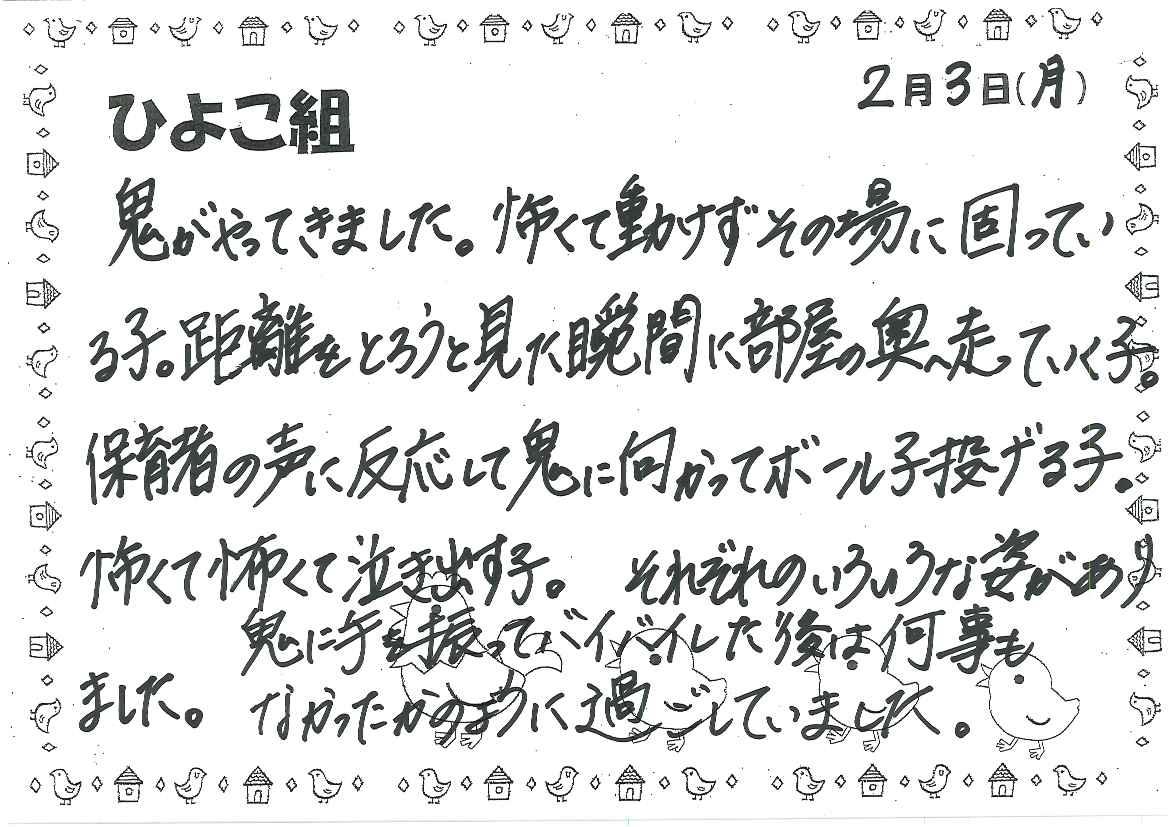 2月3日(月)
ひよこ組
鬼がやってきました。怖くて動けずその場に固ってい
る子。距離をとろうと見た瞬間に部屋の奥へ走っていく子。
保育者の声に反応して鬼に向かってボール子投げる子。
怖くて怖くて泣き出す子。 それぞれのいろいろな姿があり
ました。
鬼に手を振ってバイバイした後は何事も
なかったかのように過ごしていました。